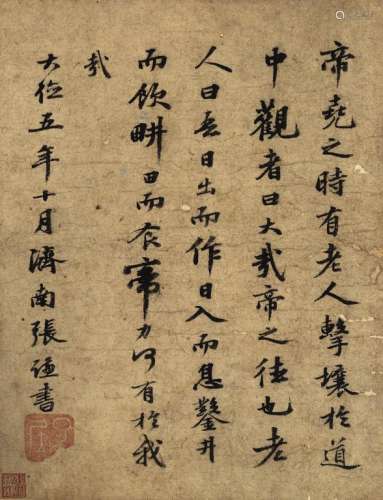 帝堯之時有老人擊壤於道
中觀者曰大哉帝之德也老
人曰吾日出而作日入而息鑿井
而飲畊田而食帝力何有於我
哉
大德五年十月濟南張謙書